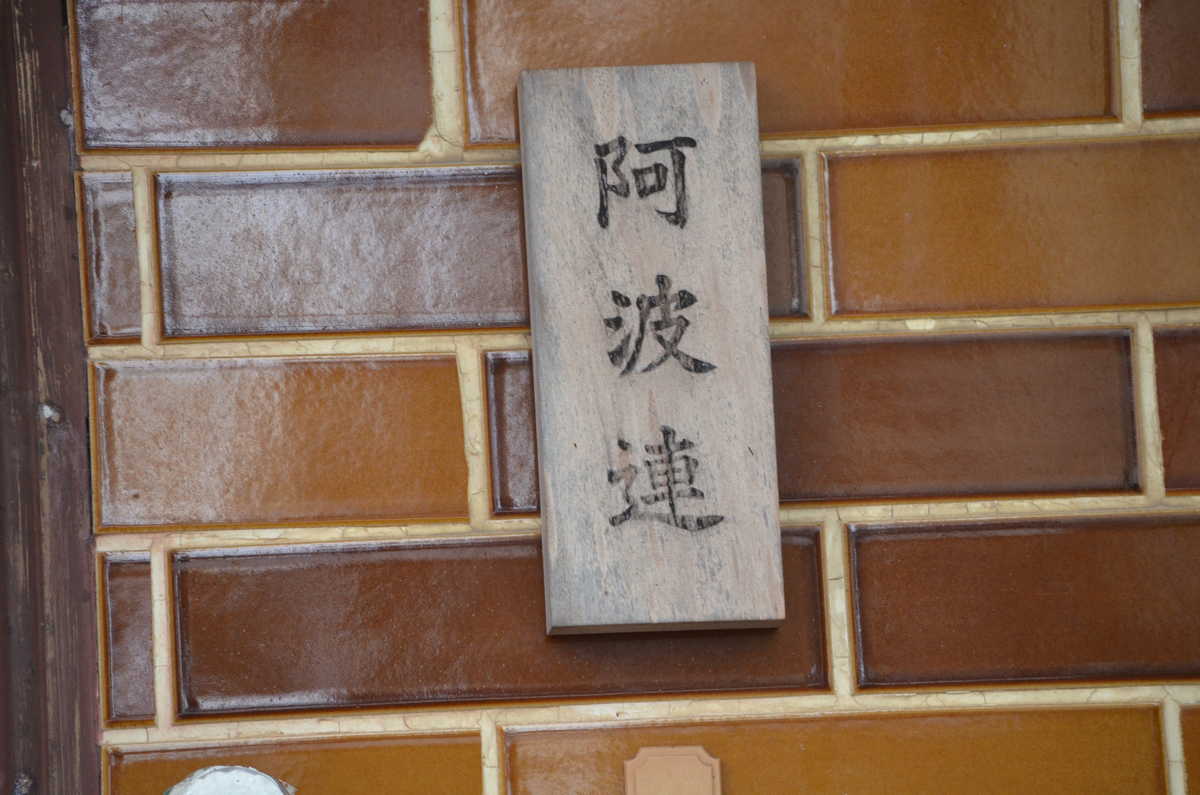 阿波連